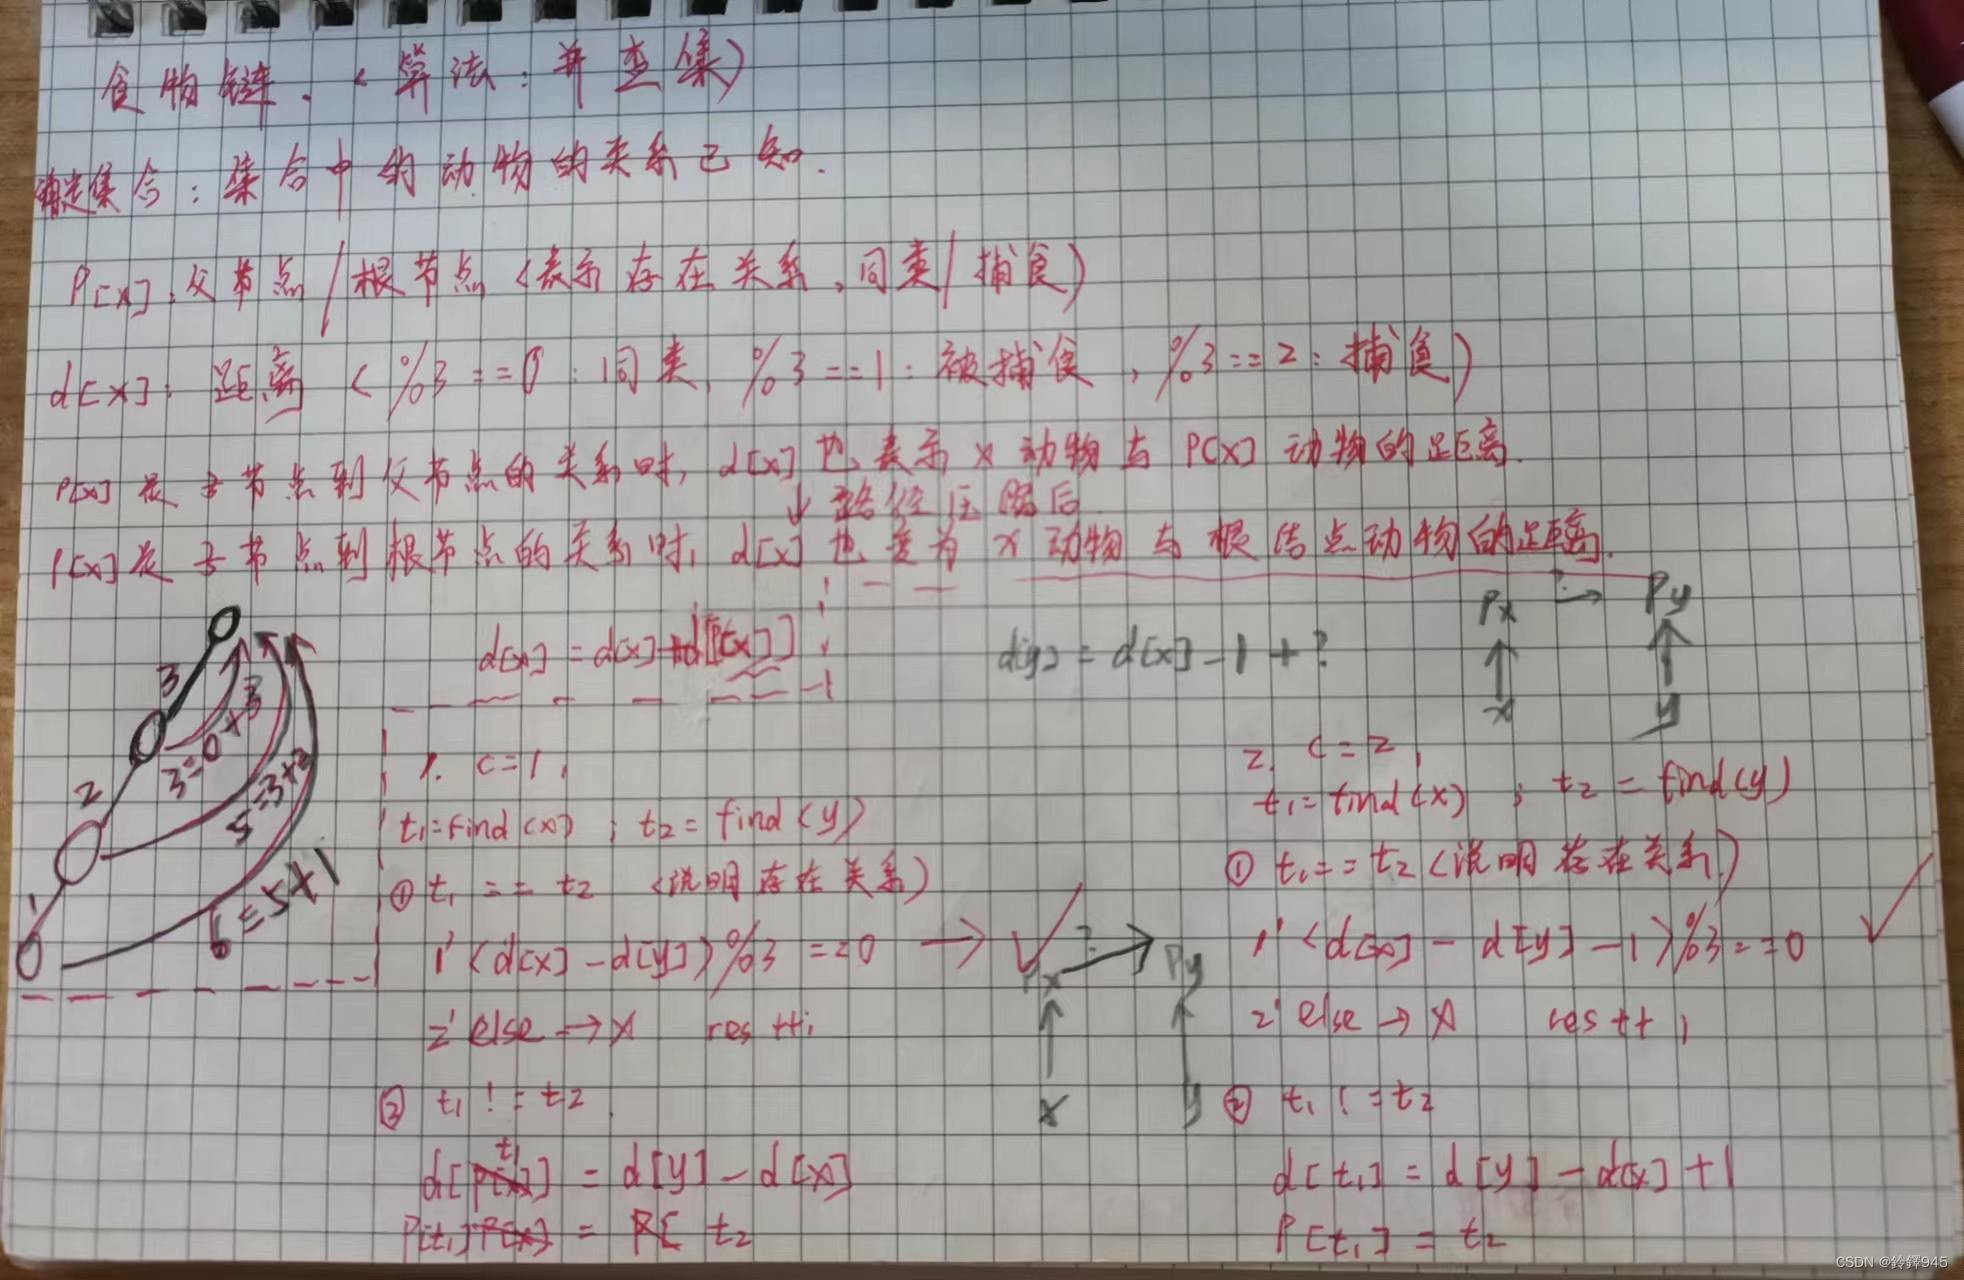 食物链.(算法:并查集)
确定集合:集合中的动物的关系已知.
P[x],父节点/根节点(表示存在关系,同类/捕食)
d[x]: 距离(%3==0:同类,%3==1:被捕食,%3==2:捕食)
P[x]表子节点到父节点的关系时,d[x]也表示x动物与P[x]动物的距离.
↓路径压缩后
P[x]表子节点到根节点的关系时,d[x]也变为x动物与根结点动物的距离.
Px ? → Py
d[x] = d[x]+d[P[x]]
d[y] = d[x]-1+?
x y
3
3=0+3
2
5=3+2
1
6=5+1
1. c=1,
t1=find(x) ; t2=find(y)
① t1 == t2 (说明存在关系)
1' (d[x]-d[y])%3 ==0 → √
2' else → X res++;
② t1 != t2
d[t1] = d[y]-d[x]
P[t1] = t2
Px ? → Py
x y
2. c=2,
t1=find(x) ; t2=find(y)
① t1==t2(说明存在关系)
1' (d[x]-d[y]-1)%3==0 √
2' else → X res++;
② t1 != t2
d[t1] = d[y]-d[x]+1
P[t1] = t2
CSDN @鈴鐸945